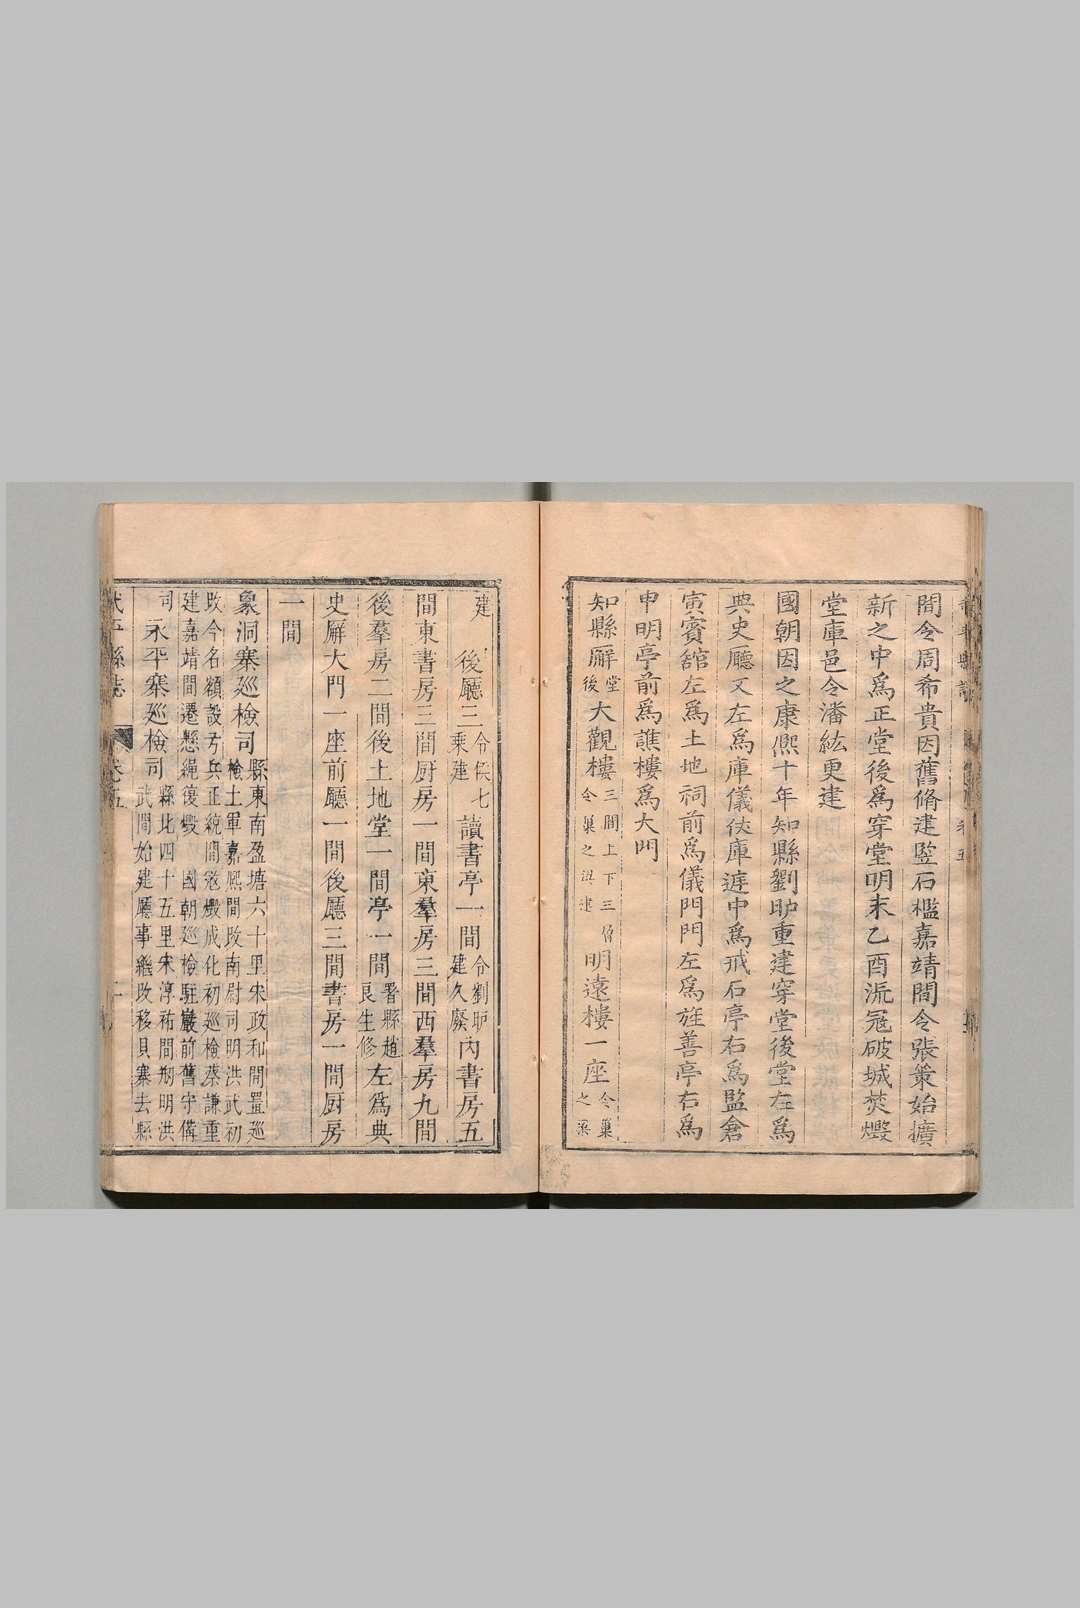 間令周希貴因舊脩建竪石檻嘉靖間令張䇿始擴
新之中爲正堂後爲穿堂明末乙酉流冦破城焚燬
堂庫邑令潘紘更建
國朝因之康熈十年知縣劉㫕重建穿堂後堂左爲
典史廳又左爲庫儀伏庫遅中爲戒石亭右爲監倉
寅賓舘左爲土地祠前爲儀門門左爲旌善亭右爲
申明亭前爲譙樓爲大門
知縣廨堂後大觀樓三間上下三層令巢之梁建明遠樓一座令巢之梁
建後廳三令侯七乘建讀書亭一間令劉㫕建久廢內書房五
間東書房三間厨房一間東羣房三間西羣房九間
後羣房二間後土地堂一間亭一間署縣趙良生修左爲典
史廨大門一座前廳一間後廳三間書房一間厨房
一間
象洞寨廵檢司縣東南盈塘六十里宋政和間置廵
檢土軍嘉熈間攺南尉司明洪武初
攺今名額設弓兵正統間冦燬成化初廵檢蔡謙重
建嘉靖間遷懸繩復燬國朝廵檢駐巖前舊守備
司
永平寨廵檢司縣北四十五里宋淳祐間剏明洪
武間始建廳事繼攺移貝寨去縣
武平縣誌 卷五 二